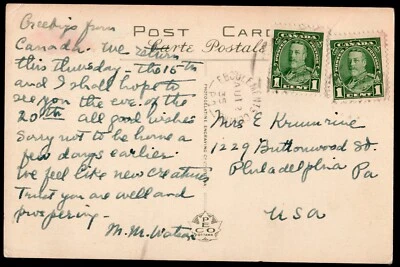 POST CARD
Carte Postale
Greetings from
Canada. We return
this Thursday - the 15th
and I shall hope to
see you the eve. of the
20th all good wishes
Sorry not to be home a
few days earlier.
We feel like new creatures
Trust you are well and
prospering.
M. M. Watson
CANADA
1 CENT 1
CANADA
1 CENT 1
Mrs E Krumrine
1229 Buttonwood St
Philadelphia Pa
USA
PECO